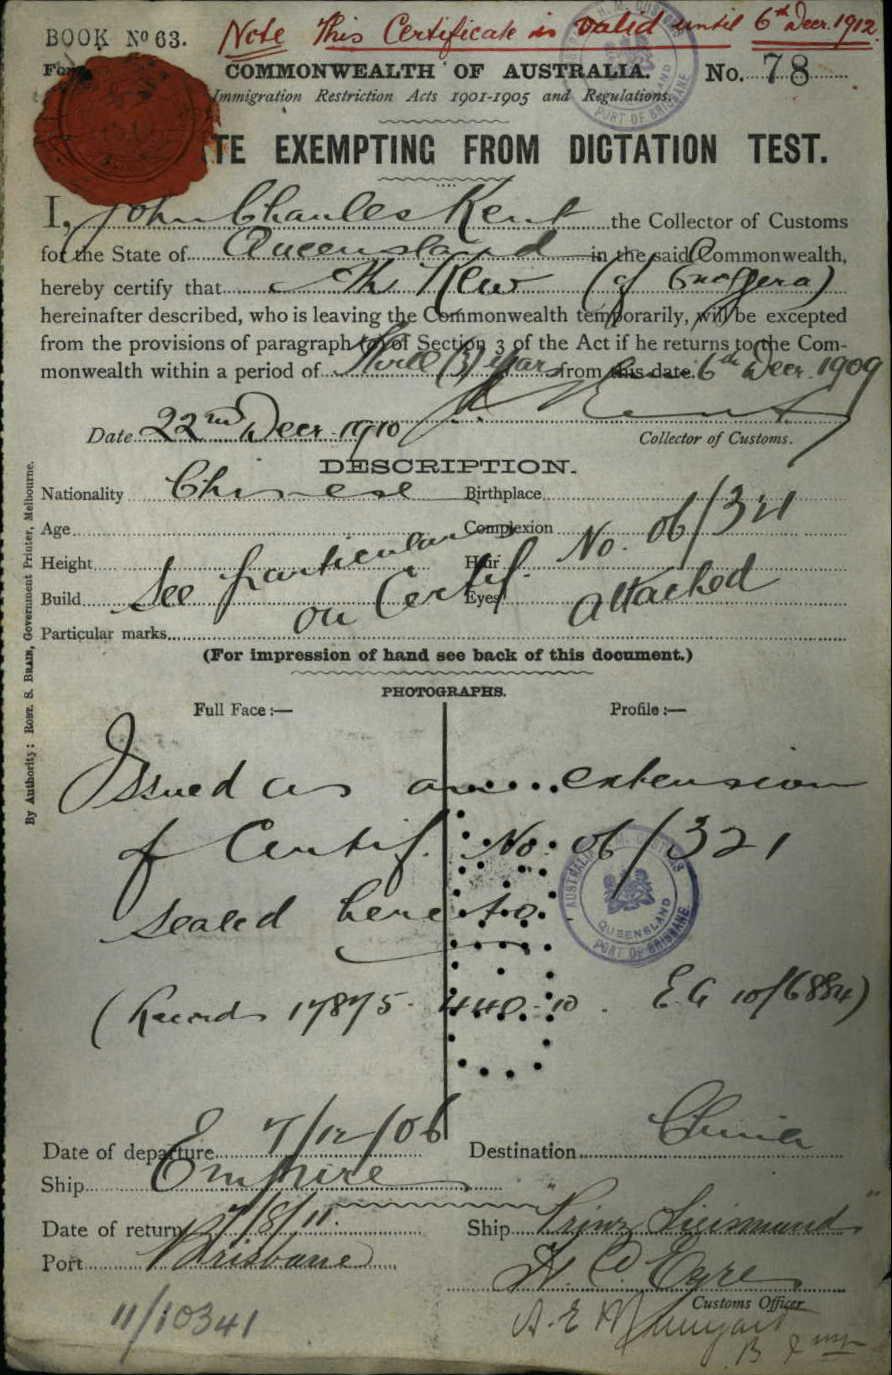 BOOK No 63.
Note This Certificate is valid until 6th Decr. 1912.
COMMONWEALTH OF AUSTRALIA. No. 78
Immigration Restriction Acts 1901-1905 and Regulations.
TE EXEMPTING FROM DICTATION TEST.
I, John Charles Kent the Collector of Customs
for the State of Queensland in the said Commonwealth,
hereby certify that Ah Kew (of Enoggera)
hereinafter described, who is leaving the Commonwealth temporarily, will be excepted
from the provisions of paragraph (a) of Section 3 of the Act if he returns to the Com-
monwealth within a period of Three (3) years from this date. 6th Decr. 1909
Date 22nd Decr 1910
Collector of Customs.
DESCRIPTION.
Nationality Chinese Birthplace
Age Complexion No. 06/321
Height Hair
Build See particulars on Certif. Eyes attached
Particular marks
(For impression of hand see back of this document.)
PHOTOGRAPHS.
Full Face:— Profile:—
Issued as an extension
of Certif. No. 06/321
sealed hereto.
(Records 17875. 440-10. E.G 10/6884)
AUSTRALIA H. M. CUSTOMS
QUEENSLAND
PORT OF BRISBANE
Date of departure 7/12/06 Destination China
Ship Empire
Date of return 7/8/11. Ship "Prinz Sigismund"
Port Brisbane H. C. Eyre
Customs Officer
11/10341
By Authority: Robt. S. Brain, Government Printer, Melbourne.